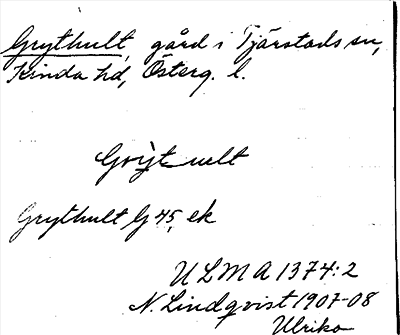 Grythult, gård i Tjärstads sn,
Kinda hd, Österg. l.
Grythult G 45, ek
ULMA 1374:2
N. Lindqvist 1907-08